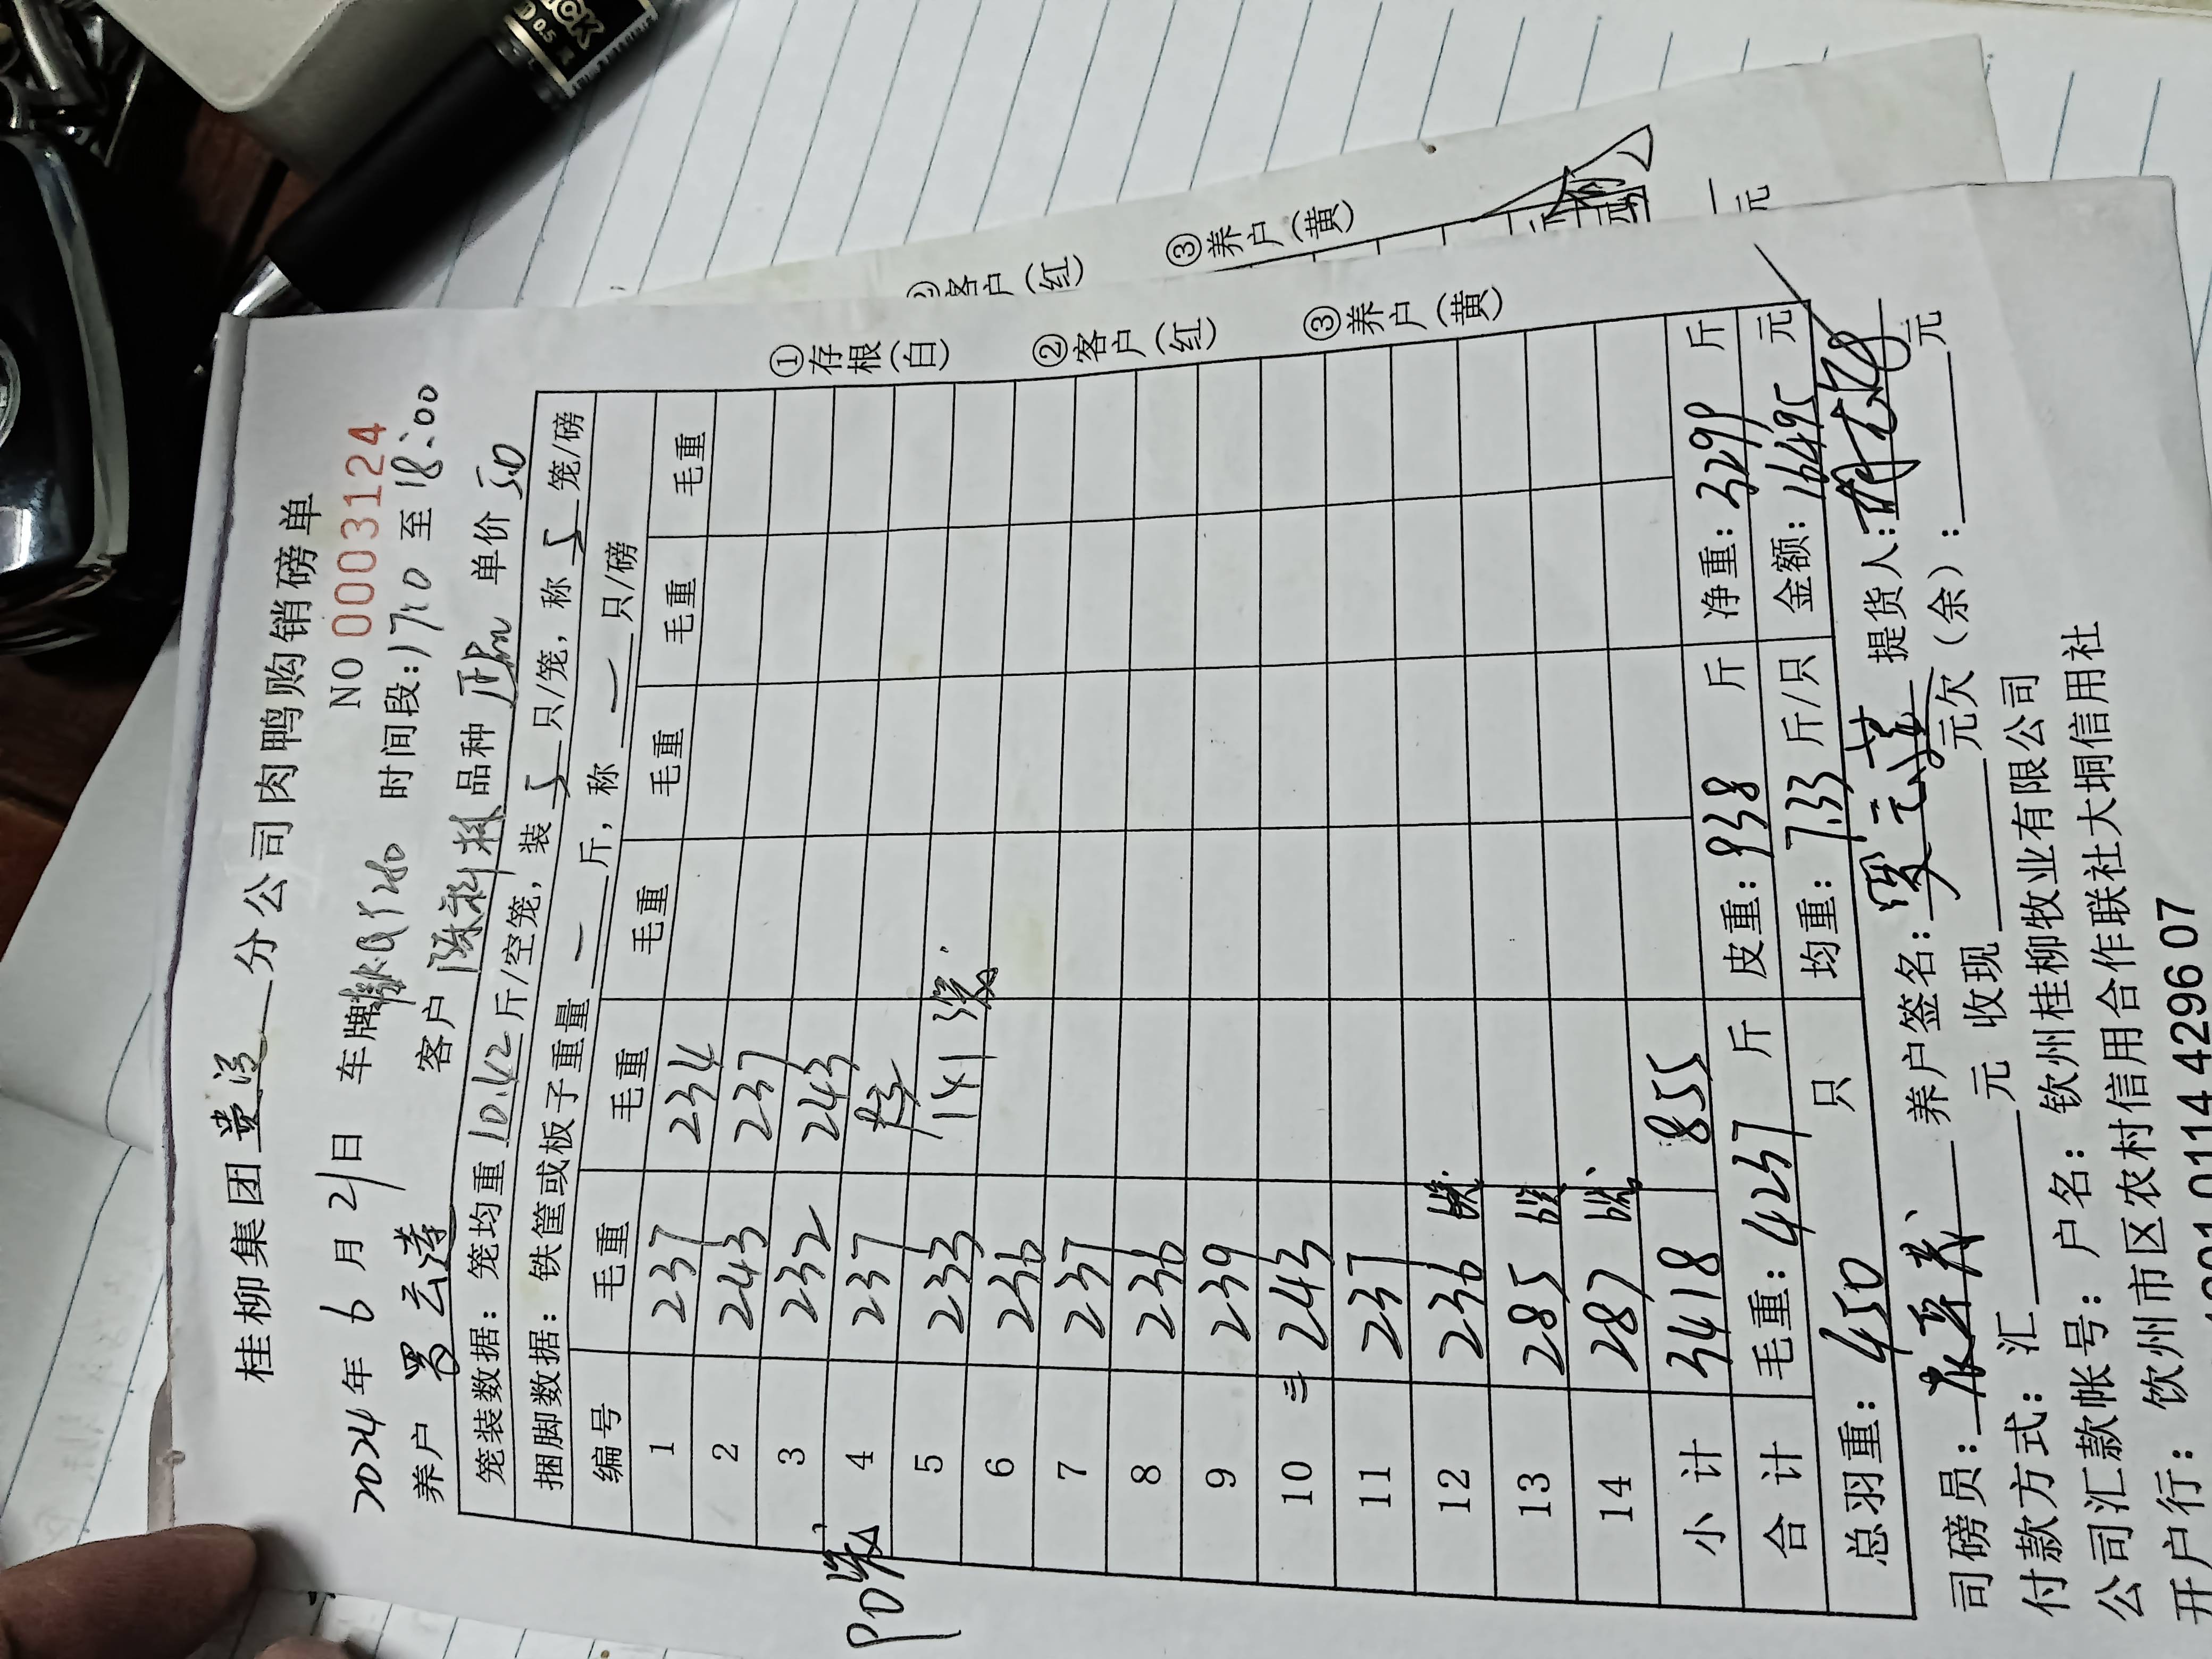 桂柳集团 分公司肉鸭购销磅单
NO 0003124
2024年6月21日 车牌 时间段:17:10至18:00
养户 罗云萍 客户 品种 单价 5.0
笼装数据：笼均重10.42斤/空笼，装5只/笼，称5笼/磅
捆脚数据：铁筐或板子重量 — 斤，称 — 只/磅
编号 毛重 毛重 毛重 毛重 毛重 毛重
1 237 234
2 243 237
3 232 243
4 237
5 233
6 236
7 237
8 236
9 239
10 243
11 237
12 236
13 285
14 287
小计 3418 855
合计 毛重：4237斤 皮重：938斤 净重：3299斤
总羽重：450只 均重：7.33斤/只 金额：16495元
司磅员： 养户签名：罗云萍 提货人：
付款方式：汇 元 收现 元欠（余）： 元
公司汇款帐号：户名：钦州桂柳牧业有限公司
开户行：钦州市区农村信用合作联社大垌信用社
01 0114 4296 07
①存根（白）
②客户（红）
③养户（黄）
客户（红）
③养户（黄）
元
0.5